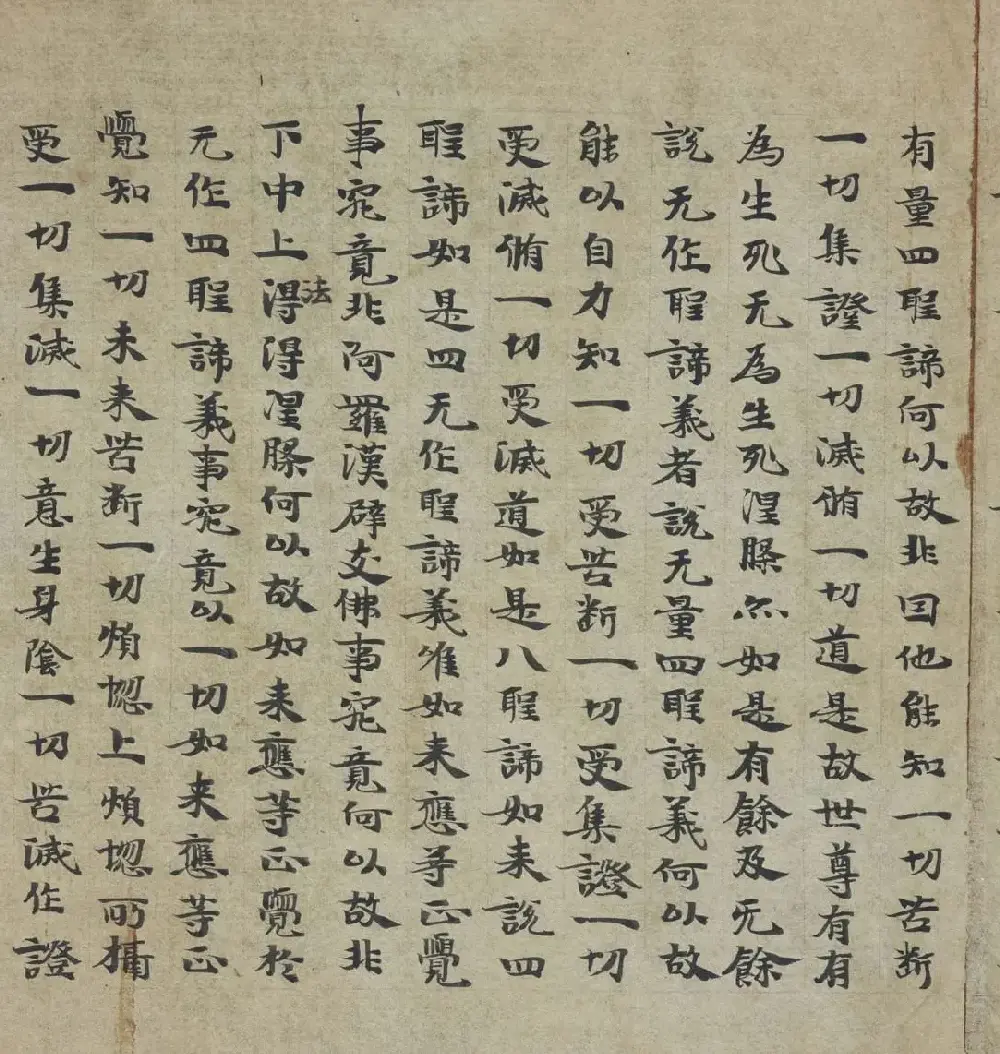 有量四聖諦何以故非因他能知一切苦断
一切集證一切滅脩一切道是故世尊有有
為生死无為生死涅槃亦如是有餘及无餘
說无作聖諦義者說无量四聖諦義何以故
能以自力知一切受苦断一切受集證一切
受滅脩一切受滅道如是八聖諦如来說四
聖諦如是四无作聖諦義唯如来應等正覺
事究竟非阿羅漢辟支佛事究竟何以故非
下中上得法得涅槃何以故如来應等正覺於
无作四聖諦義事究竟以一切如来應等正
覺知一切未来苦断一切煩惱上煩惱所攝
受一切集滅一切意生身陰一切苦滅作證